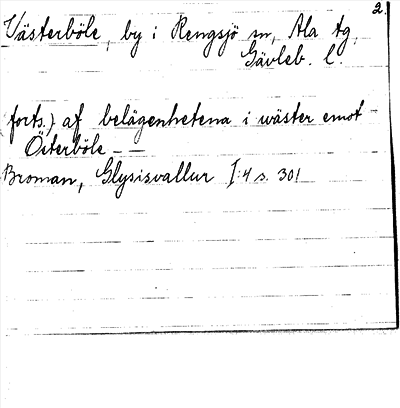 2.
Västerböle, by i Rengsjö sn, Ala tg,
Gävleb. l.
forts.) af belägenhetena i wäster emot
Österböle - —
Broman, Glysisvallur I:4 s. 301